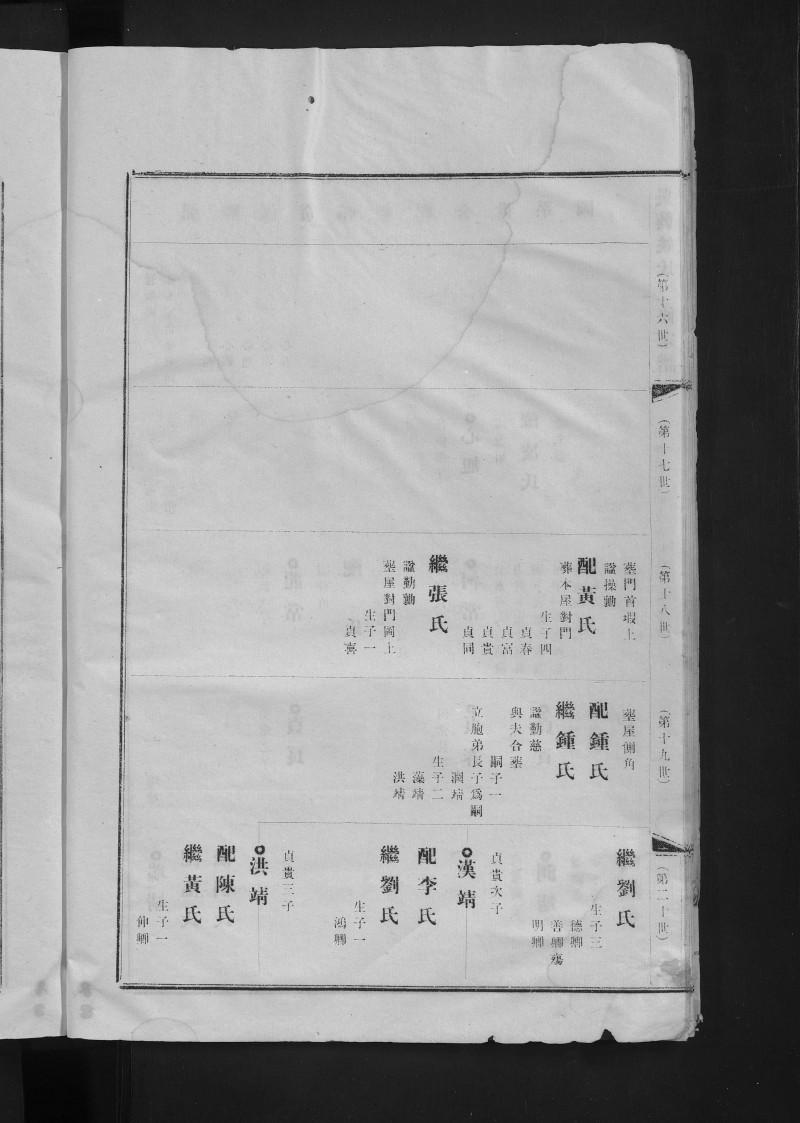 (第十六世)
(第十七世)
(第十八世)
塟門首塅上
諡操勤
配黃氏
葬本屋對門
生子四
貞春
貞富
貞貴
貞同
繼張氏
諡勤勤
塟屋對門岡上
生子一
貞喜
(第十九世)
塟屋側角
配鍾氏
繼鍾氏
諡勤慈
與夫合塟
嗣子一
立胞弟長子爲嗣
潤靖
生子二
藻靖
洪靖
(第二十世)
繼劉氏
生子三
德卿
善卿殤
明卿
貞貴次子
漢靖
配李氏
繼劉氏
生子一
鴻卿
貞貴三子
洪靖
配陳氏
繼黃氏
生子一
仲卿